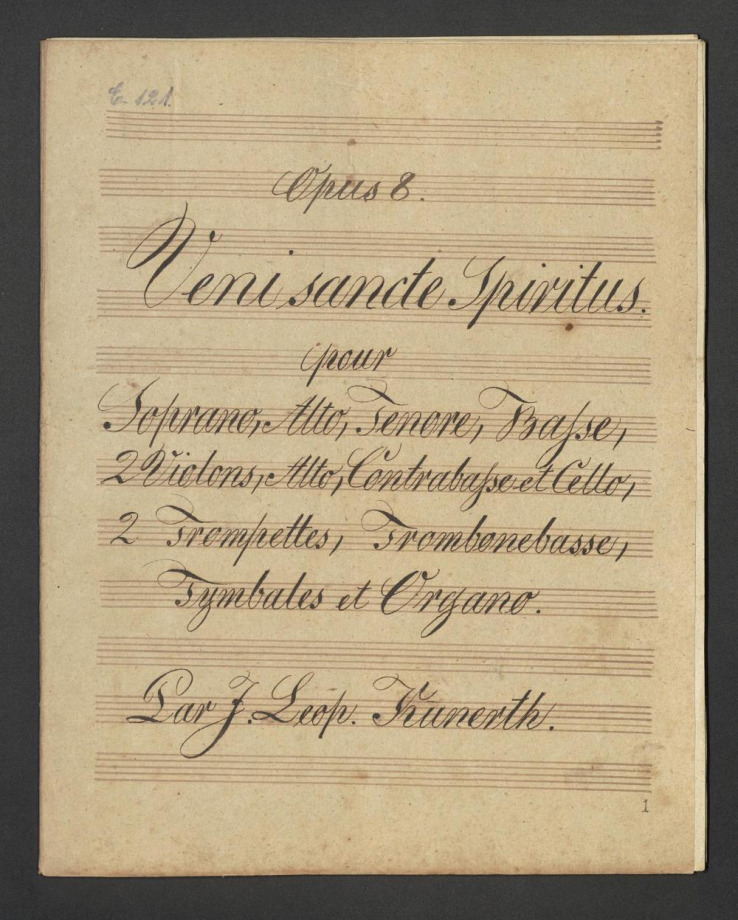 E 121.
Opus 8.
Veni sancte Spiritus.
pour
Soprano, Alto, Tenore, Basse,
2 Violons, Alto, Contrabasse et Cello,
2 Trompettes, Trombonebasse,
Tymbales et Organo.
Par J. Leop. Kunerth.
1